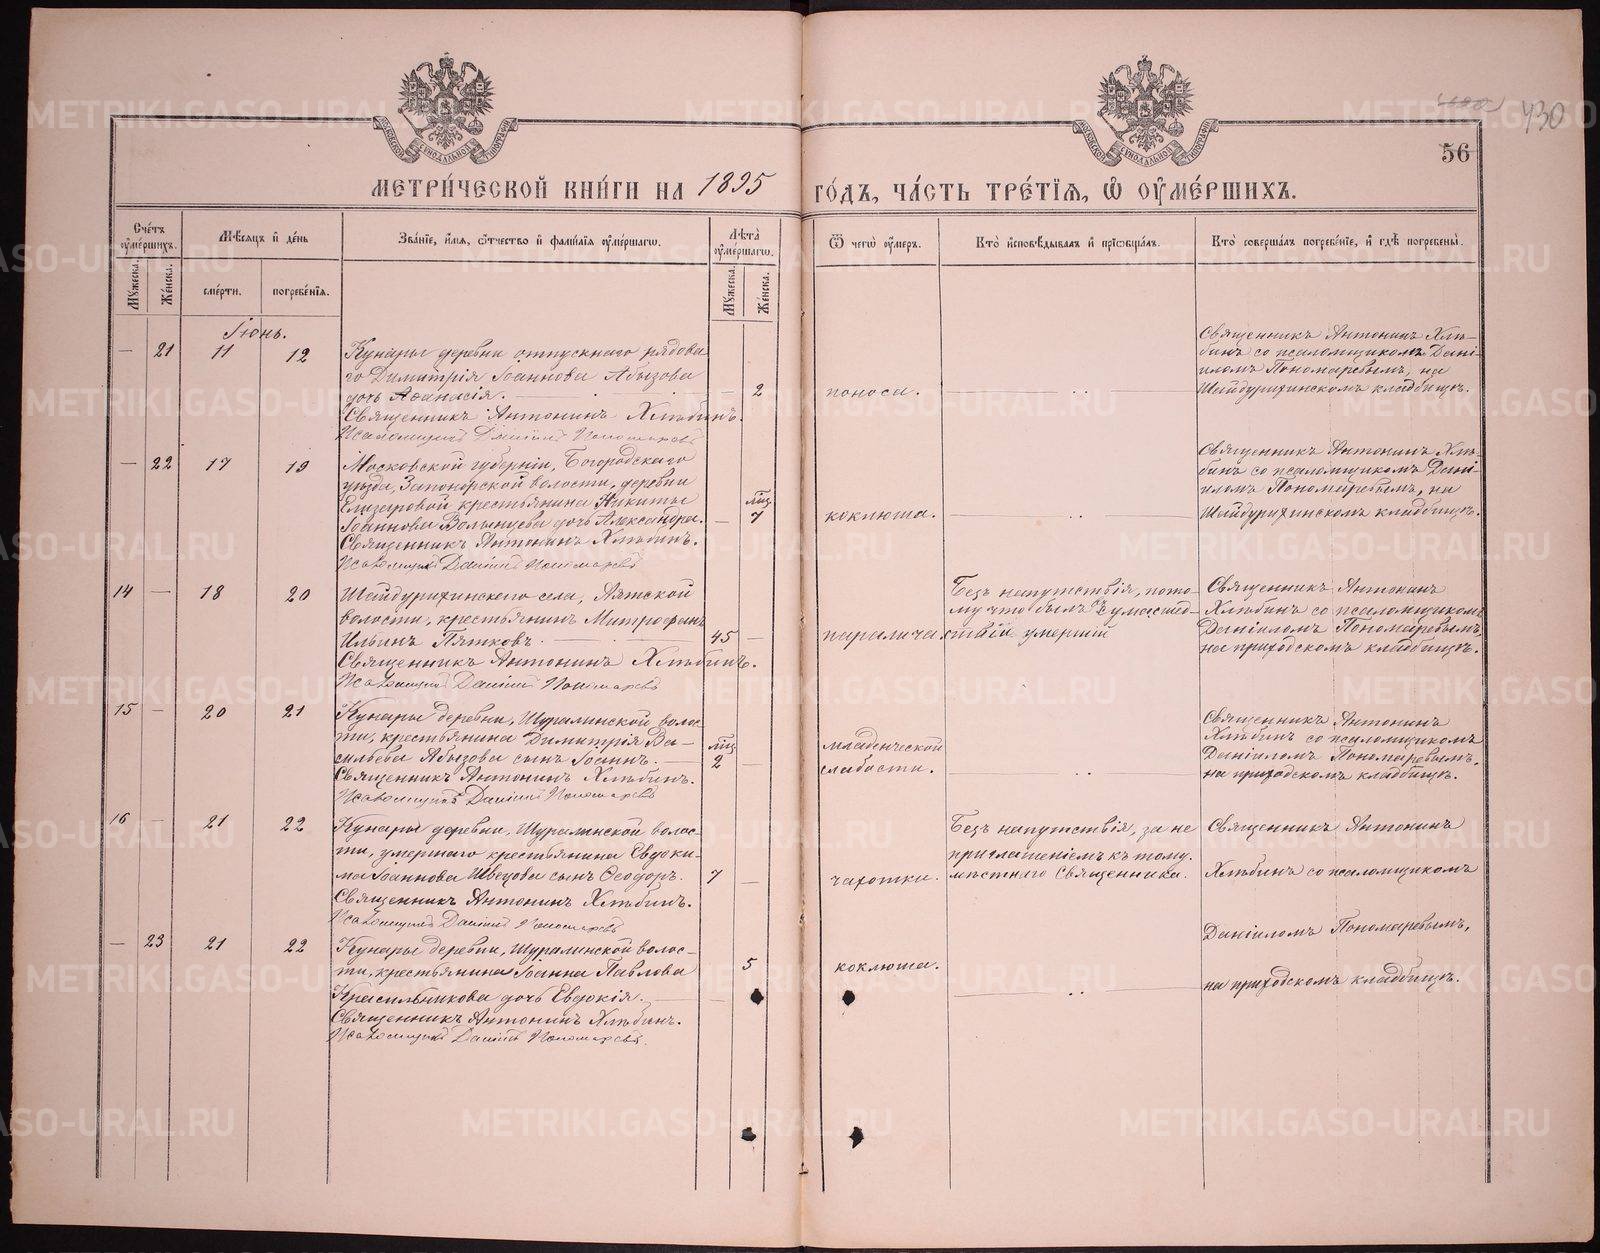 430
56
МЕТРИ́ЧЕСКОЙ КНИ́ГИ НА 1895 ГО́ДЪ, ЧА́СТЬ ТРЕ́ТІѦ, Ѽ ОУ҆МЕ́РШИХЪ.
Сче́тъ оу҆ме́ршихъ.
Мѣ́сѧцъ и҆ де́нь
Зва́ніе, и҆́мѧ, ѻ҆́тчество и҆ фами́лїѧ оу҆ме́ршагѡ.
Лѣ́та оу҆ме́ршагѡ.
Ѿ чегѡ̀ оу҆́меръ.
Кто̀ и҆сповѣ́дывалъ и҆ прїѡбща́лъ.
Кто̀ соверша́лъ погребе́нїе, и҆ гдѣ̀ погребены̀.
Мꙋ́жеска.
Же́нска.
сме́рти.
погребе́нїѧ.
Мꙋ́жеска.
Же́нска.
Іюнь.
— 21 11 12
Кунары деревни отпускнаго рядова
го Димитрія Іоаннова Абызова
дочь Афанасія. — 2
Священникъ Антонинъ Хлѣбинъ.
Псаломщикъ Даніилъ Пономаревъ
поноса.
Священникъ Антонинъ Хлѣ-
бинъ со псаломщикомъ Дані-
иломъ Пономаревымъ, на
Шайдурихинскомъ кладбищѣ.
— 22 17 19
Московской губерніи, Богородскаго
уѣзда, Запонорской волости, деревни
Елизаровой крестьянина Никиты
Іоаннова Волынцева дочь Александра. — мѣс. 7
Священникъ Антонинъ Хлѣбинъ.
Псаломщикъ Даніилъ Пономаревъ
коклюша.
Священникъ Антонинъ Хлѣ-
бинъ со псаломщикомъ Дані-
иломъ Пономаревымъ, на
Шайдурихинскомъ кладбищѣ.
14 — 18 20
Шайдурихинскаго села, Аятской
волости, крестьянинъ Митрофанъ
Ильинъ Пятковъ. 45 —
Священникъ Антонинъ Хлѣбинъ.
Псаломщикъ Даніилъ Пономаревъ
паралича.
Безъ напутствія, пото-
му что былъ въ сумасшед-
ствіи умершій
Священникъ Антонинъ
Хлѣбинъ со псаломщикомъ
Даніиломъ Пономаревымъ,
на приходскомъ кладбищѣ.
15 — 20 21
Кунары деревни, Шуралинской волос-
ти, крестьянина Димитрія Ва-
сильева Абызова сынъ Іоаннъ. — мѣс. 2 —
Священникъ Антонинъ Хлѣбинъ.
Псаломщикъ Даніилъ Пономаревъ
младенческой
слабости.
Священникъ Антонинъ
Хлѣбинъ со псаломщикомъ
Даніиломъ Пономаревымъ,
на приходскомъ кладбищѣ.
16 — 21 22
Кунары деревни, Шуралинской волос-
ти, умершаго крестьянина Евдоки-
ма Іоаннова Швецова сынъ Ѳеодоръ. 7 —
Священникъ Антонинъ Хлѣбинъ.
Псаломщикъ Даніилъ Пономаревъ
чахотки.
Безъ напутствія, за не
приглашеніемъ къ тому
мѣстнаго Священника.
Священникъ Антонинъ
Хлѣбинъ со псаломщикомъ
Даніиломъ Пономаревымъ,
на приходскомъ кладбищѣ.
— 23 21 22
Кунары деревни, Шуралинской волос-
ти, крестьянина Іоанна Павлова
Красильникова дочь Евдокія. — 5
Священникъ Антонинъ Хлѣбинъ.
Псаломщикъ Даніилъ Пономаревъ.
коклюша.
METRIKI.GASO-URAL.RU